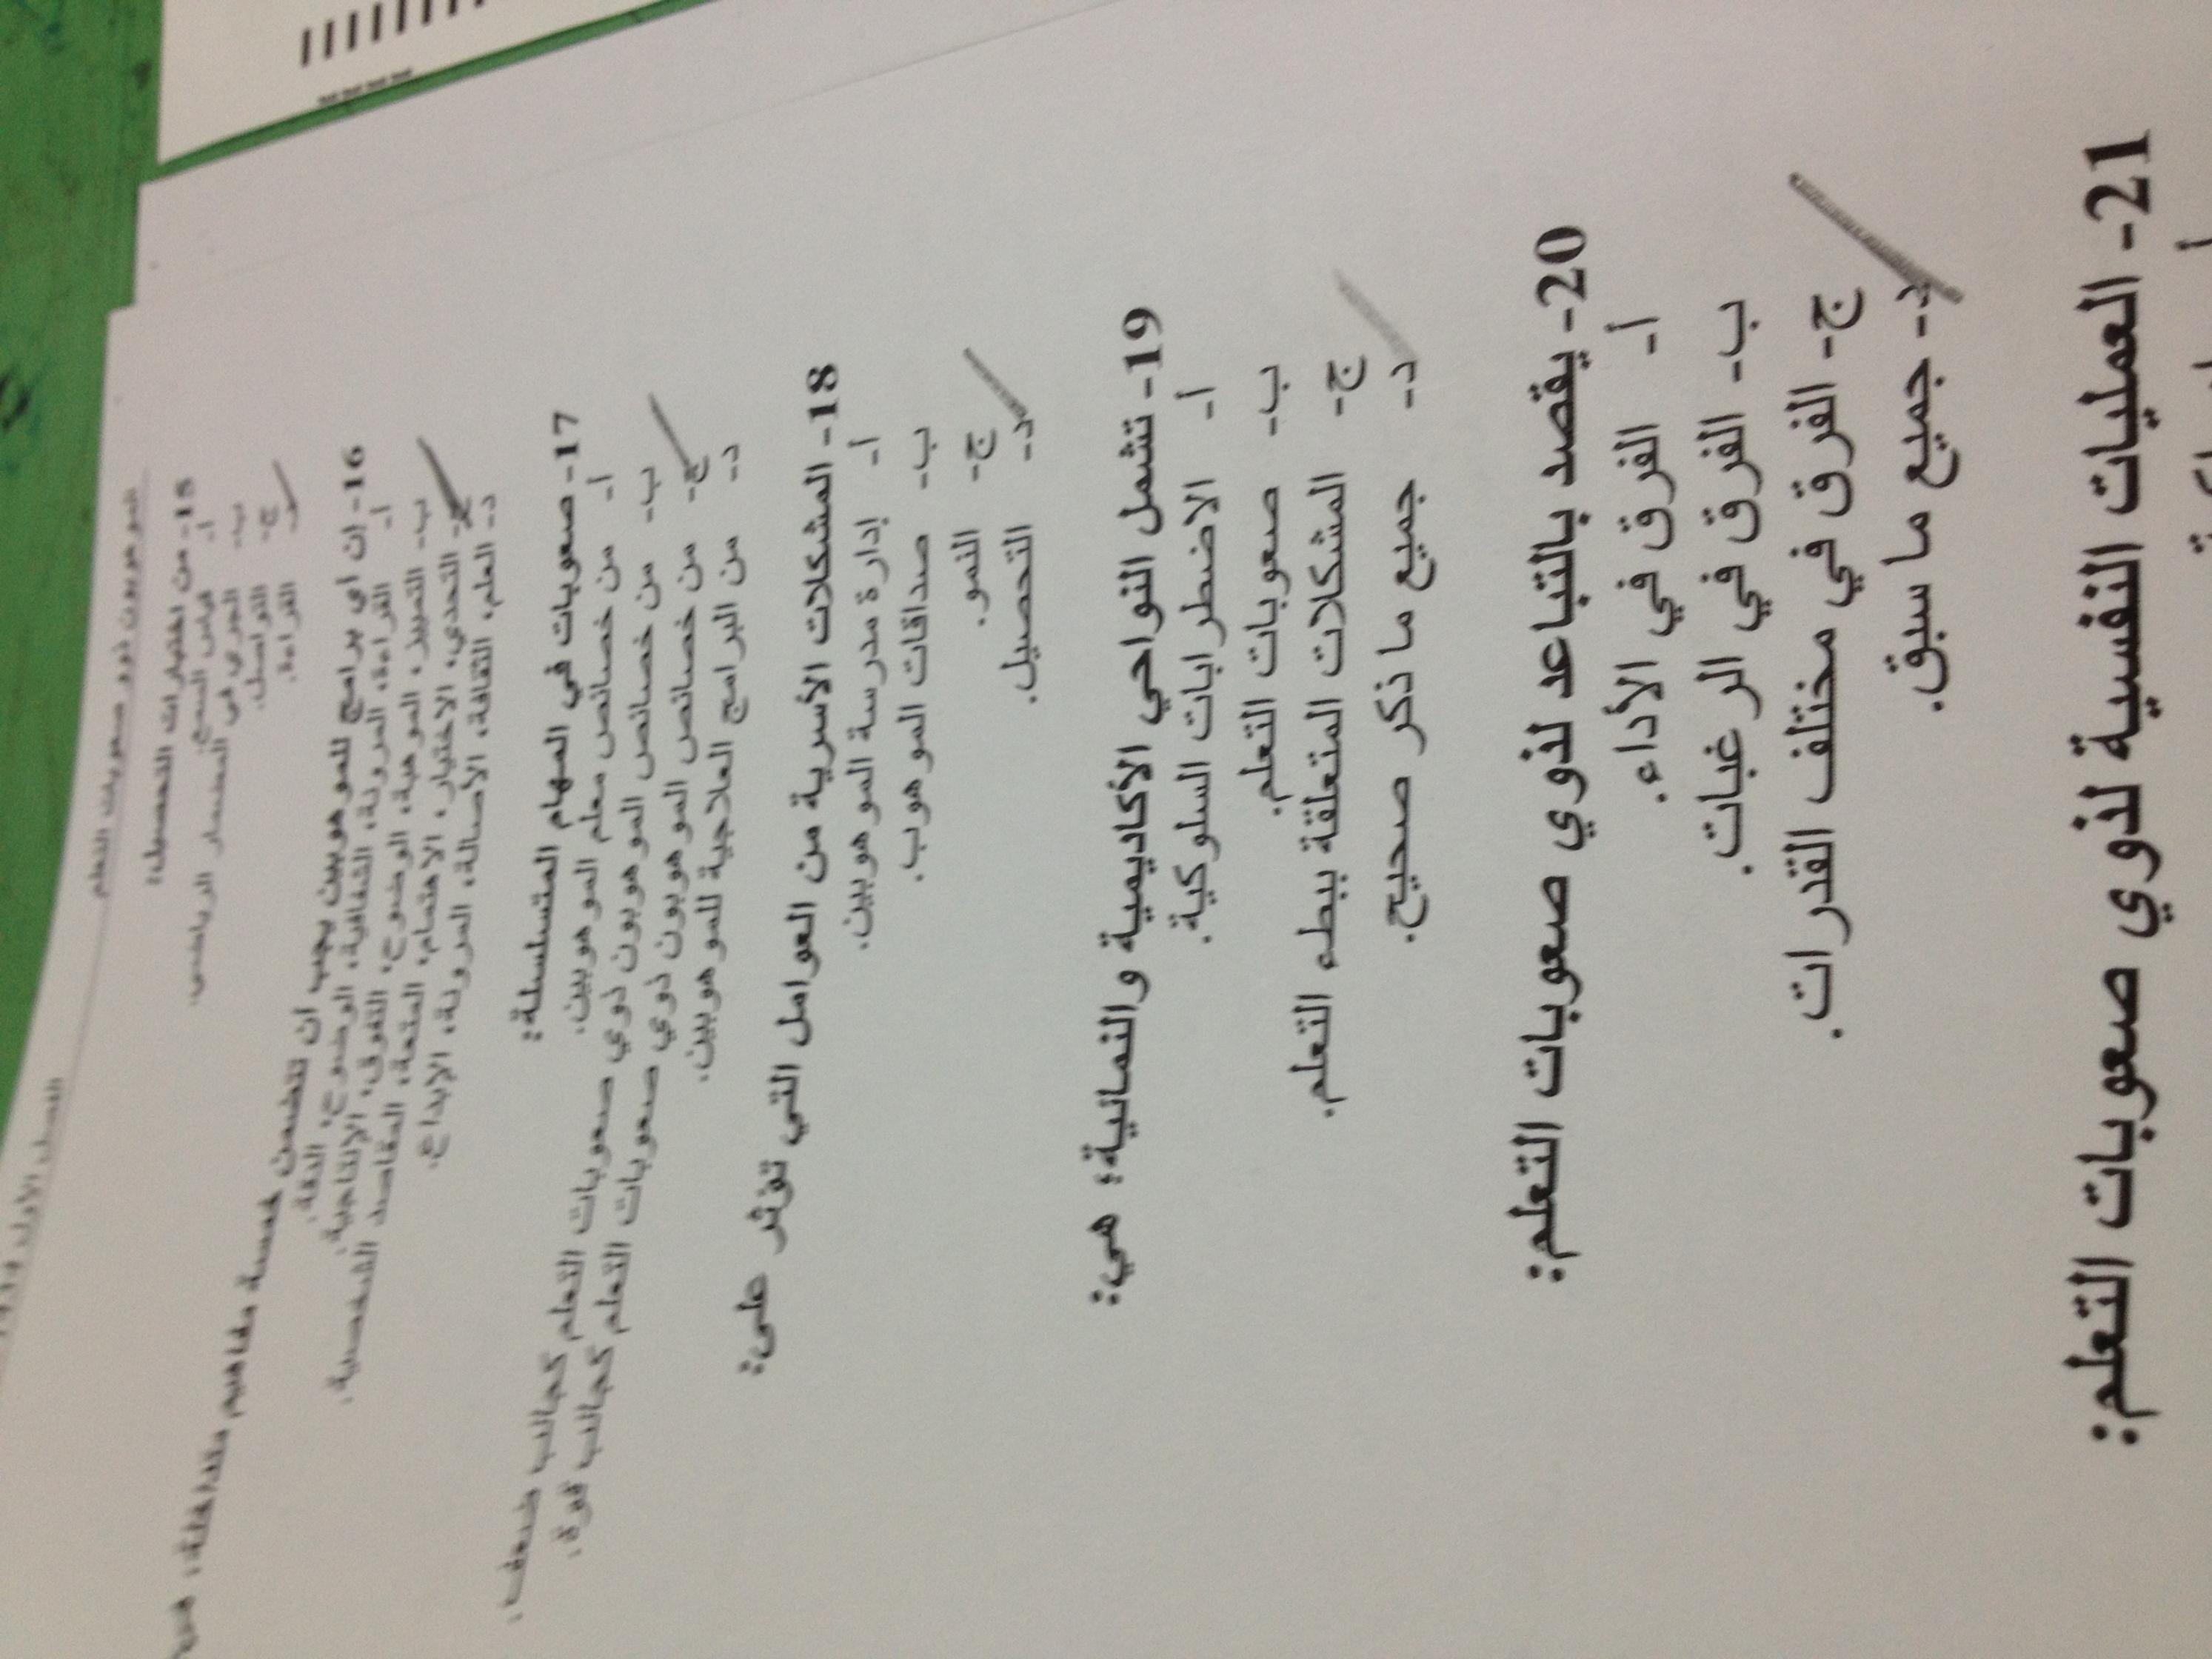 الموهوبون ذوو صعوبات التعلم
الفصل الأول
15- من اختبارات التحصيل:
أ- قياس السمع.
ب- الجري في المضمار الرياضي.
ج- التواصل.
د- القراءة.
16- إن أي برامج للموهوبين يجب أن تتضمن خمسة مفاهيم متداخلة،
أ- القراءة، المرونة، الشفافية، الوضوح، الدقة.
ب- التمييز، الموهبة، الوضوح، التفوق، الإنتاجية.
ج- التحدي، الاختيار، الاهتمام، المتعة، المقاصد الشخصية.
د- العلم، الثقافة، الأصالة، المرونة، الإبداع.
17- صعوبات في المهام المتسلسلة:
أ- من خصائص معلم الموهوبين.
ب- من خصائص الموهوبون ذوي صعوبات التعلم كجانب ضعف.
ج- من خصائص الموهوبون ذوي صعوبات التعلم كجانب قوة.
د- من البرامج العلاجية للموهوبين.
18- المشكلات الأسرية من العوامل التي تؤثر على:
أ- إدارة مدرسة الموهوبين.
ب- صداقات الموهوب.
ج- النمو.
د- التحصيل.
19- تشمل النواحي الأكاديمية والنمائية؛ هي:
أ- الاضطرابات السلوكية.
ب- صعوبات التعلم.
ج- المشكلات المتعلقة ببطء التعلم.
د- جميع ما ذكر صحيح.
20- يقصد بالتباعد لذوي صعوبات التعلم:
أ- الفرق في الأداء.
ب- الفرق في الرغبات.
ج- الفرق في مختلف القدرات.
د- جميع ما سبق.
21- العمليات النفسية لذوي صعوبات التعلم:
أ-